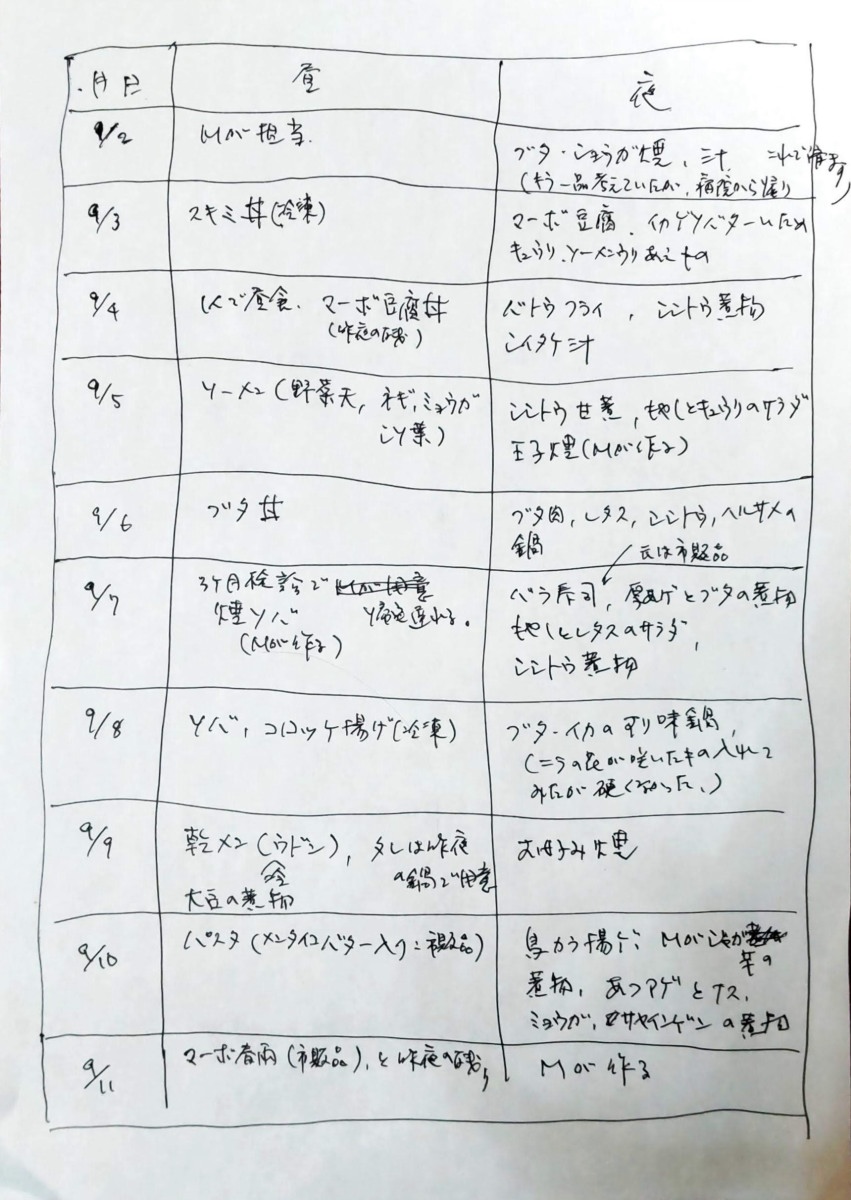 月日 昼 夜
9/2 Mが担当.
ブタ・ショウガ焼、汁. これで済ます)
(もう一品考えていたが、病院から帰り
9/3 スキミ丼(冷凍)
マーボ豆腐、イカゲソバターいため
キュウリ、ソーメンウリあえもの
9/4 1人で昼食、マーボ豆腐丼
(昨夜の残)
バトウフライ, シシトウ煮物
シイタケ汁
9/5 ソーメン(野菜天, ネギ, ミョウガ
シソ葉)
シシトウ甘煮, もやしとキュウリのサラダ
玉子焼(Mが作る)
9/6 ブタ丼
ブタ肉, レタス, シシトウ, ハルサメの
鍋
元は市販品
9/7 3ヶ月検診で
焼ソバ
(Mが作る)
バラ寿司, 厚アゲとブタの煮物
もやしとレタスのサラダ,
シシトウ煮物
9/8 ソバ, コロッケ揚げ(冷凍)
ブタ・イカのすり味鍋,
(ニラの花が咲いたもの入れて
みたが硬くなかった、)
9/9 乾メン(ウドン), タレは昨夜
冷 の鍋で用意
大豆の煮物
お好み焼
9/10 パスタ(メンタイコバター入り:市販品)
鳥カラ揚げ, Mがじゃが
芋の
煮物, あつアゲとナス,
ミョウガ, サヤインゲンの煮物
9/11 マーボ春雨(市販品), と昨夜の残り
Mが作る